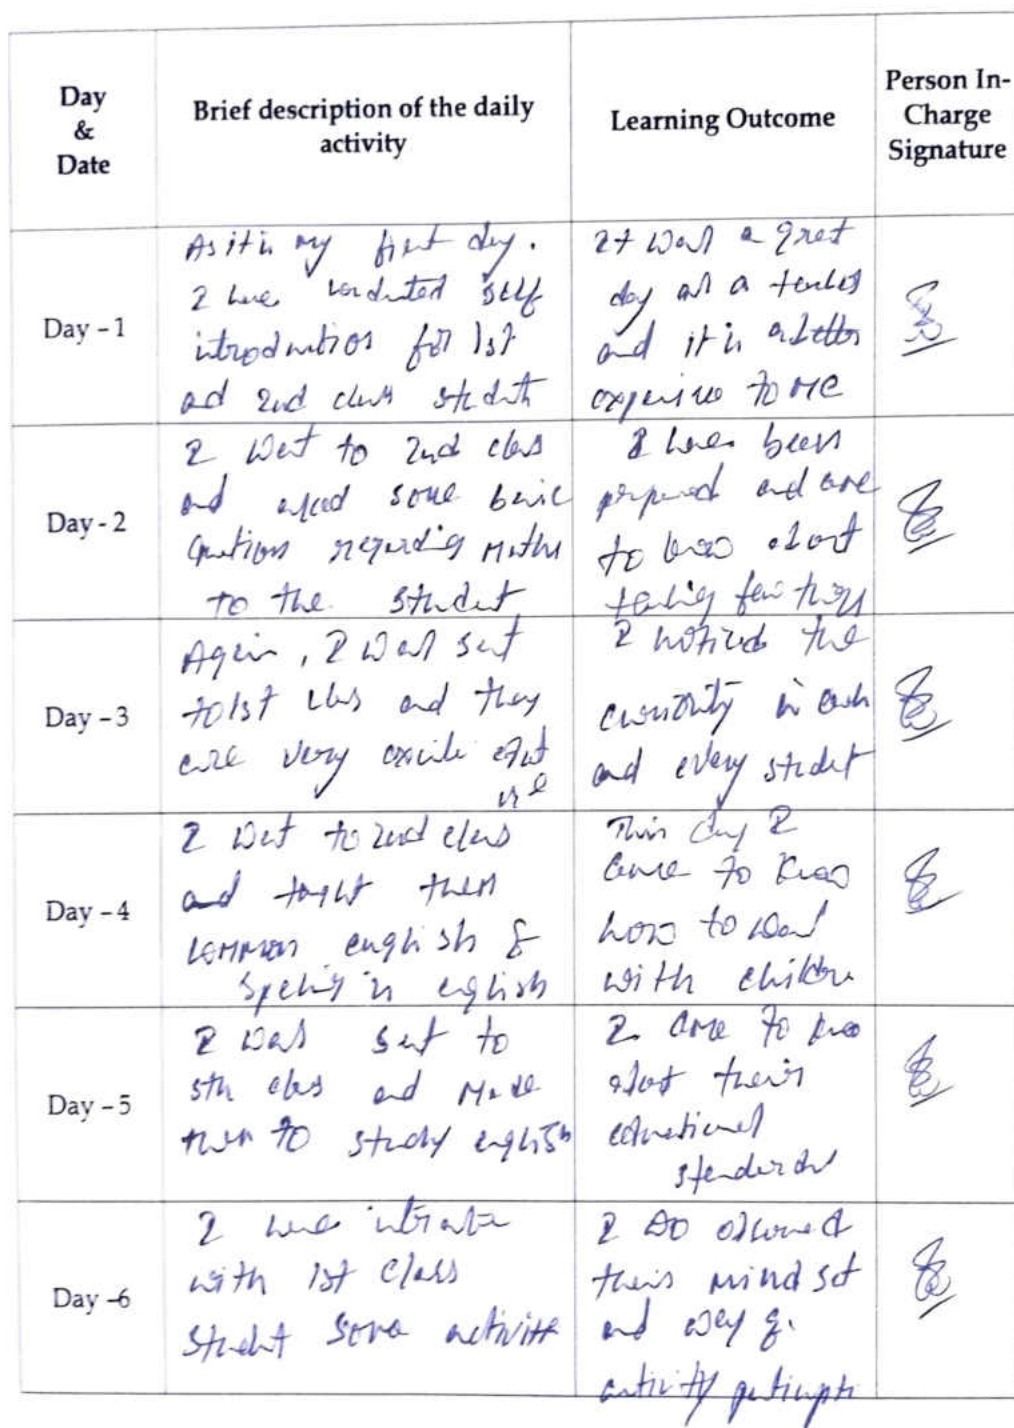 Day
&
Date
Brief description of the daily
activity
Learning Outcome
Person In-
Charge
Signature
Day - 1
As it is my first day.
I have conducted self
introduction for 1st
and 2nd class students
It was a great
day as a teacher
and it is a better
experience to me
Day - 2
I went to 2nd class
and asked some basic
questions regarding maths
to the student
I have been
prepared and
to know about
teaching few things
Day - 3
Again, I was sent
to 1st class and they
are very about
me
I noticed the
curiosity in each
and every student
Day - 4
I went to 2nd class
and taught them
common english &
speling in english
This day I
came to know
how to
with children
Day - 5
I was sent to
5th class and made
them to study english
I came to know
about their
educational
standards
Day -6
I have
with 1st class
student some
I observed
their mind set
and way of
activity